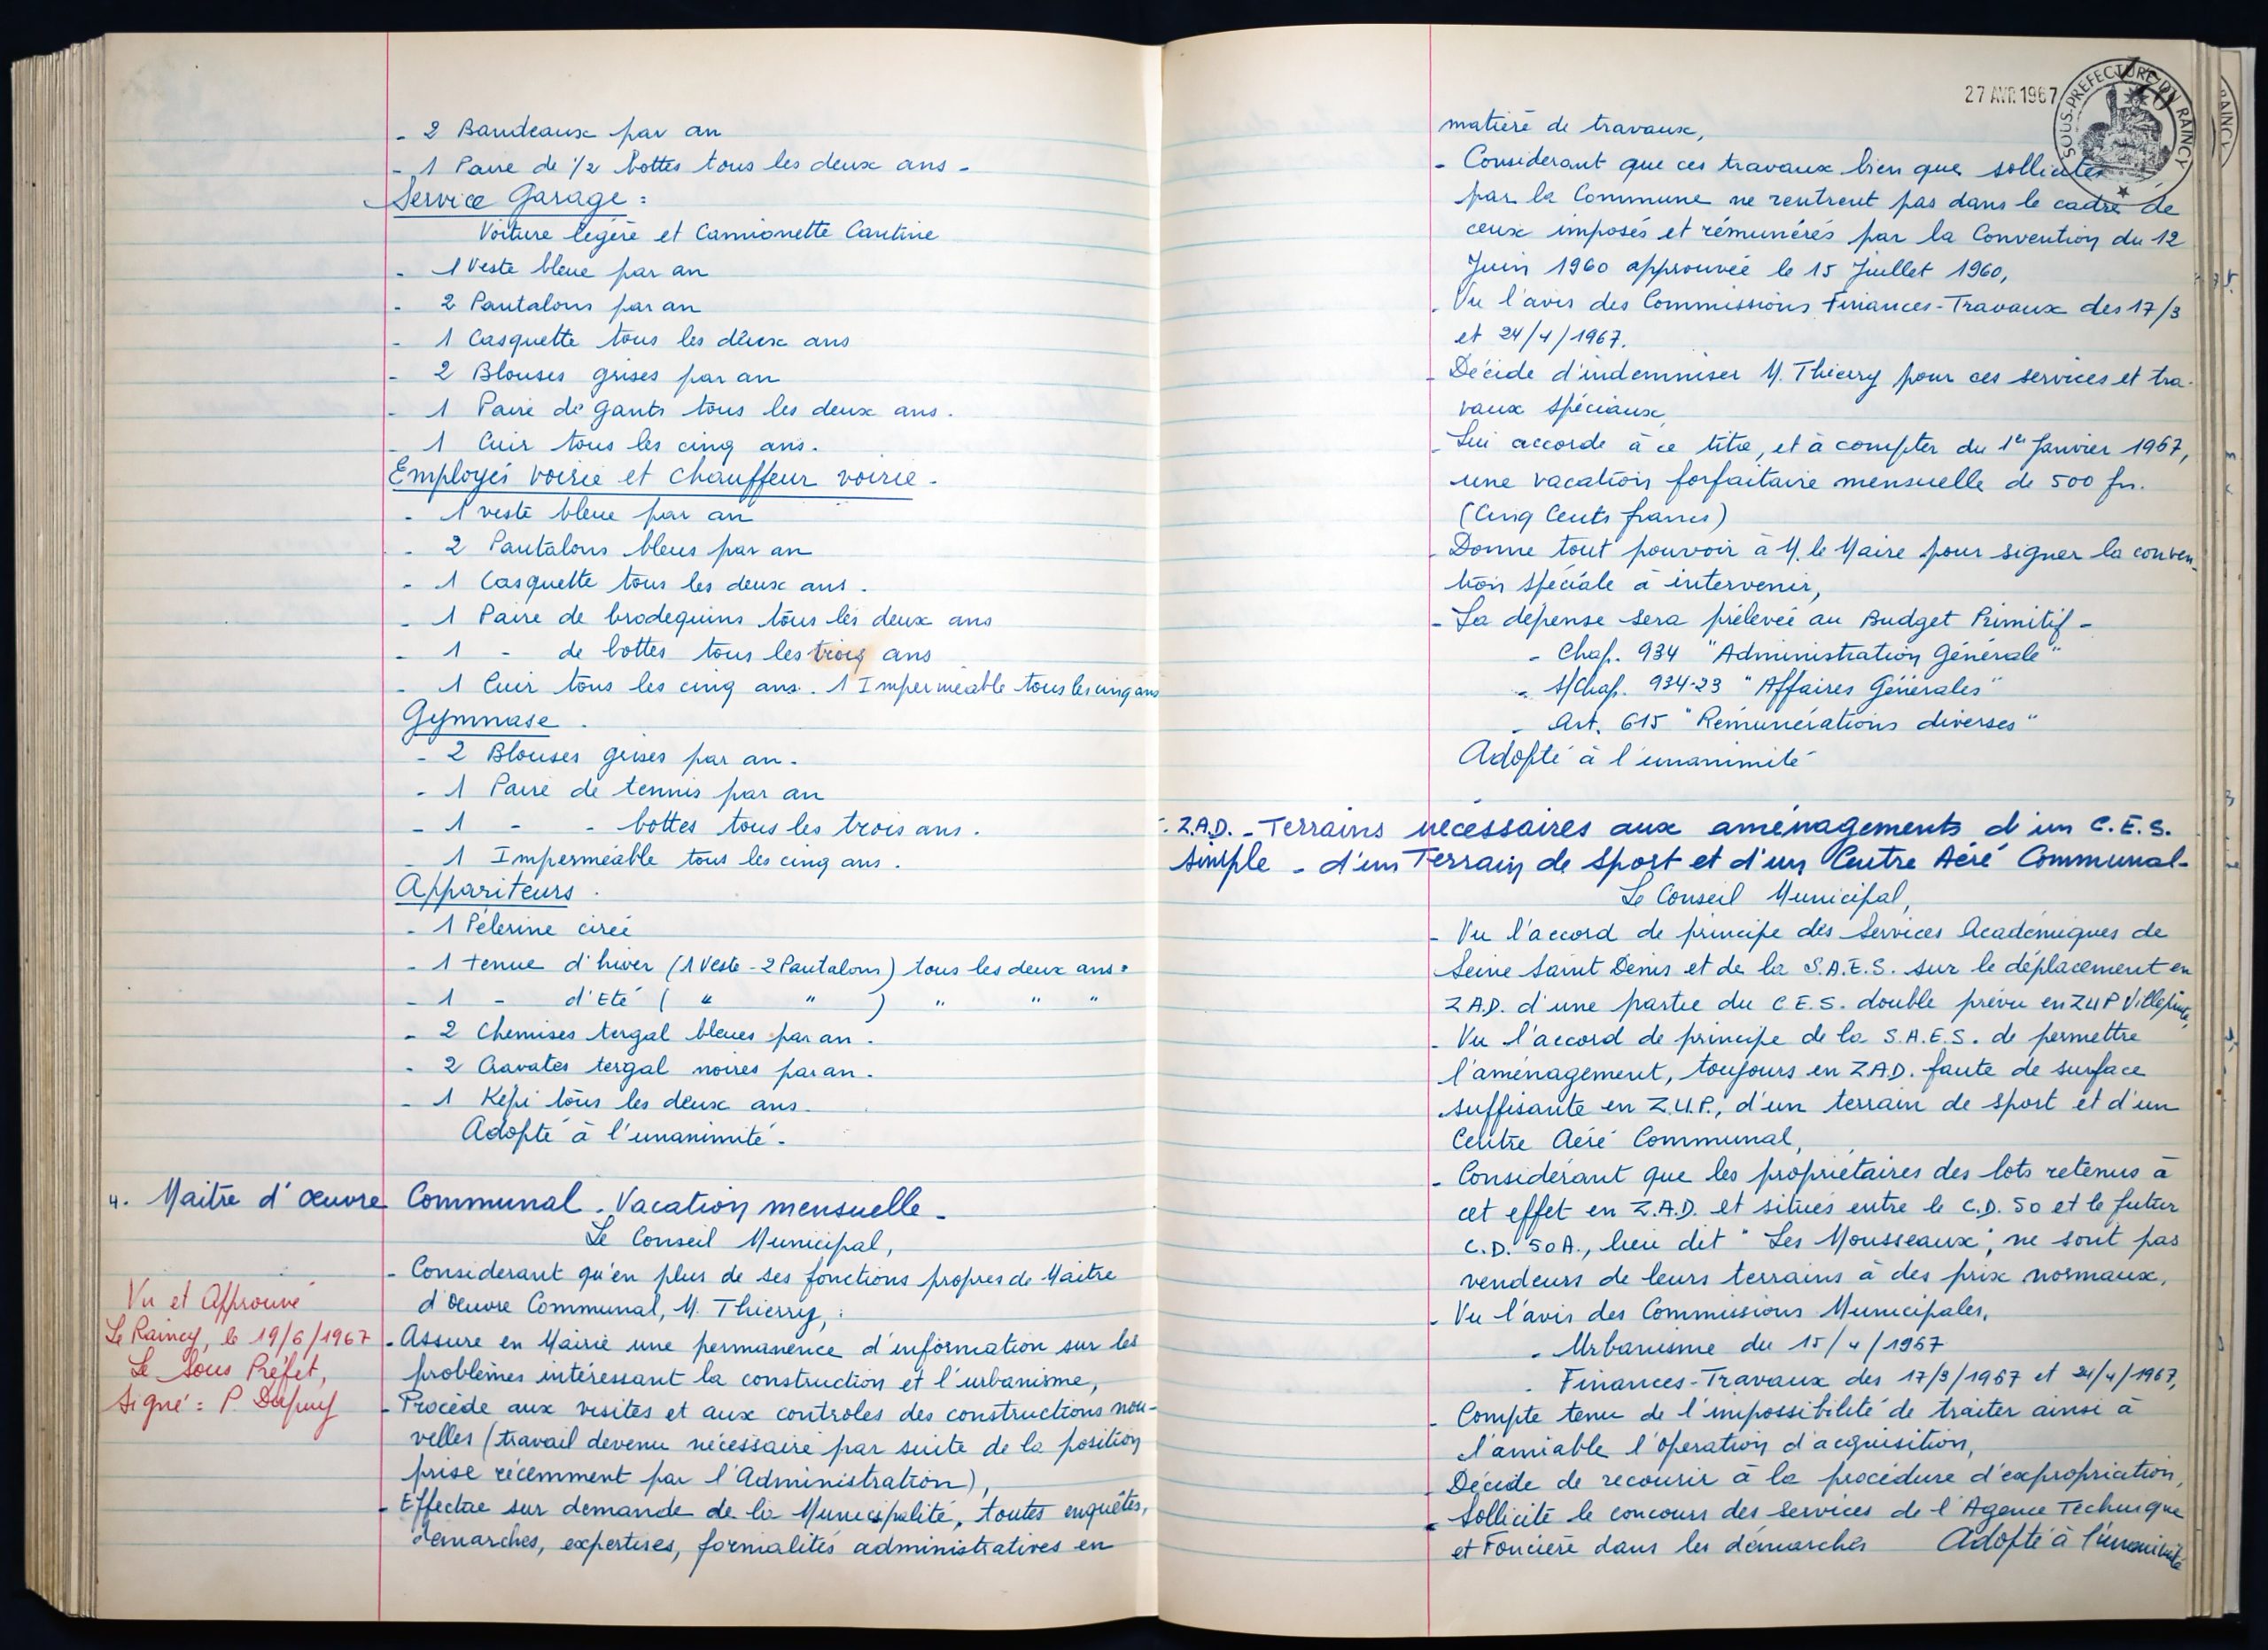 - 2 Bandeaux par an
- 1 Paire de 1/2 bottes tous les deux ans -
Service Garage :
Voiture légère et Camionette Cantine
- 1 Veste bleue par an
- 2 Pantalons par an
- 1 Casquette tous les deux ans
- 2 Blouses grises par an
- 1 Paire de gants tous les deux ans.
- 1 Cuir tous les cinq ans.
Employés voirie et chauffeur voirie -
- 1 veste bleue par an
- 2 Pantalons bleus par an
- 1 Casquette tous les deux ans.
- 1 Paire de brodequins tous les deux ans
- 1 - de bottes tous les trois ans
- 1 Cuir tous les cinq ans. 1 Imperméable tous les cinq ans
Gymnase.
- 2 Blouses grises par an.
- 1 Paire de tennis par an
- 1 - - bottes tous les trois ans.
- 1 Imperméable tous les cinq ans.
Appariteurs.
- 1 Pélerine cirée
- 1 tenue d'hiver (1 Veste - 2 Pantalons) tous les deux ans.
- 1 - d'Eté ( " " ) " " "
- 2 Chemises tergal bleues par an.
- 2 Cravates tergal noires par an.
- 1 Képi tous les deux ans.
Adopté à l'unanimité.
4. Maitre d'œuvre Communal. Vacation mensuelle.
Le Conseil Municipal,
- Considerant qu'en plus de ses fonctions propres de Maitre
d'Œuvre Communal, M. Thierry, :
- Assure en Mairie une permanence d'information sur les
problèmes intéressant la construction et l'urbanisme,
- Procède aux visites et aux controles des constructions nou-
velles (travail devenu nécessaire par suite de la position
prise récemment par l'Administration),
- Effectue sur demande de la Municipalité, toutes enquêtes,
démarches, expertises, formalités administratives en
Vu et Approuvé
Le Raincy, le 19/6/1967
Le Sous Préfet,
Signé : P. Dupuy
27 AVR. 1967
SOUS-PREFECTURE DU RAINCY
matière de travaux,
- Considerant que ces travaux bien que sollicités
par la Commune ne rentrent pas dans le cadre de
ceux imposés et rémunérés par la Convention du 12
Juin 1960 approuvée le 15 Juillet 1960,
- Vu l'avis des Commissions Finances-Travaux des 17/3
et 24/4/1967.
- Décide d'indemniser M. Thierry pour ces services et tra-
vaux spéciaux,
- Lui accorde à ce titre, et à compter du 1er Janvier 1967,
une vacation forfaitaire mensuelle de 500 frs.
(Cinq Cents francs)
- Donne tout pouvoir à M. le Maire pour signer la conven-
tion spéciale à intervenir,
- La dépense sera prélevée au Budget Primitif -
- Chap. 934 "Administration Générale"
- s/Chap. 934-23 "Affaires Générales"
- Art. 615 "Rémunérations diverses"
Adopté à l'unanimité
Z.A.D. - Terrains nécessaires aux aménagements d'un C.E.S.
simple - d'un Terrain de Sport et d'un Centre Aéré Communal-
Le Conseil Municipal,
- Vu l'accord de principe des Services Académiques de
Seine Saint Denis et de la S.A.E.S. sur le déplacement en
Z.A.D. d'une partie du C.E.S. double prévu en ZUP Villepinte,
- Vu l'accord de principe de la S.A.E.S. de permettre
l'aménagement, toujours en Z.A.D. faute de surface
suffisante en Z.U.P., d'un terrain de sport et d'un
Centre Aéré Communal,
- Considérant que les propriétaires des lots retenus à
cet effet en Z.A.D. et situés entre le C.D. 50 et le futur
C.D. 50A., lieu dit "Les Mousseaux", ne sont pas
vendeurs de leurs terrains à des prix normaux,
- Vu l'avis des Commissions Municipales,
- Urbanisme du 15/4/1967
- Finances-Travaux des 17/3/1967 et 24/4/1967,
- Compte tenu de l'impossibilité de traiter ainsi à
l'amiable l'opération d'acquisition,
- Décide de recourir à la procédure d'expropriation,
- Sollicite le concours des services de l'Agence Technique
et Foncière dans les démarches Adopté à l'unanimité